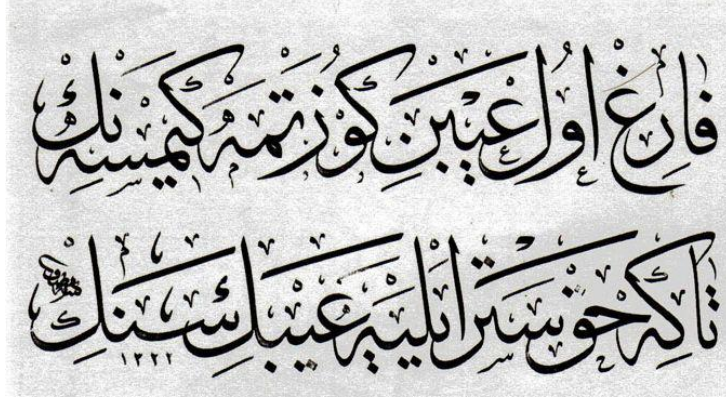 فارغ اول عيبن كوزتمه كيمسه نك
تاكه حق ستر ايليه عيبك سنك
١٣٢٢